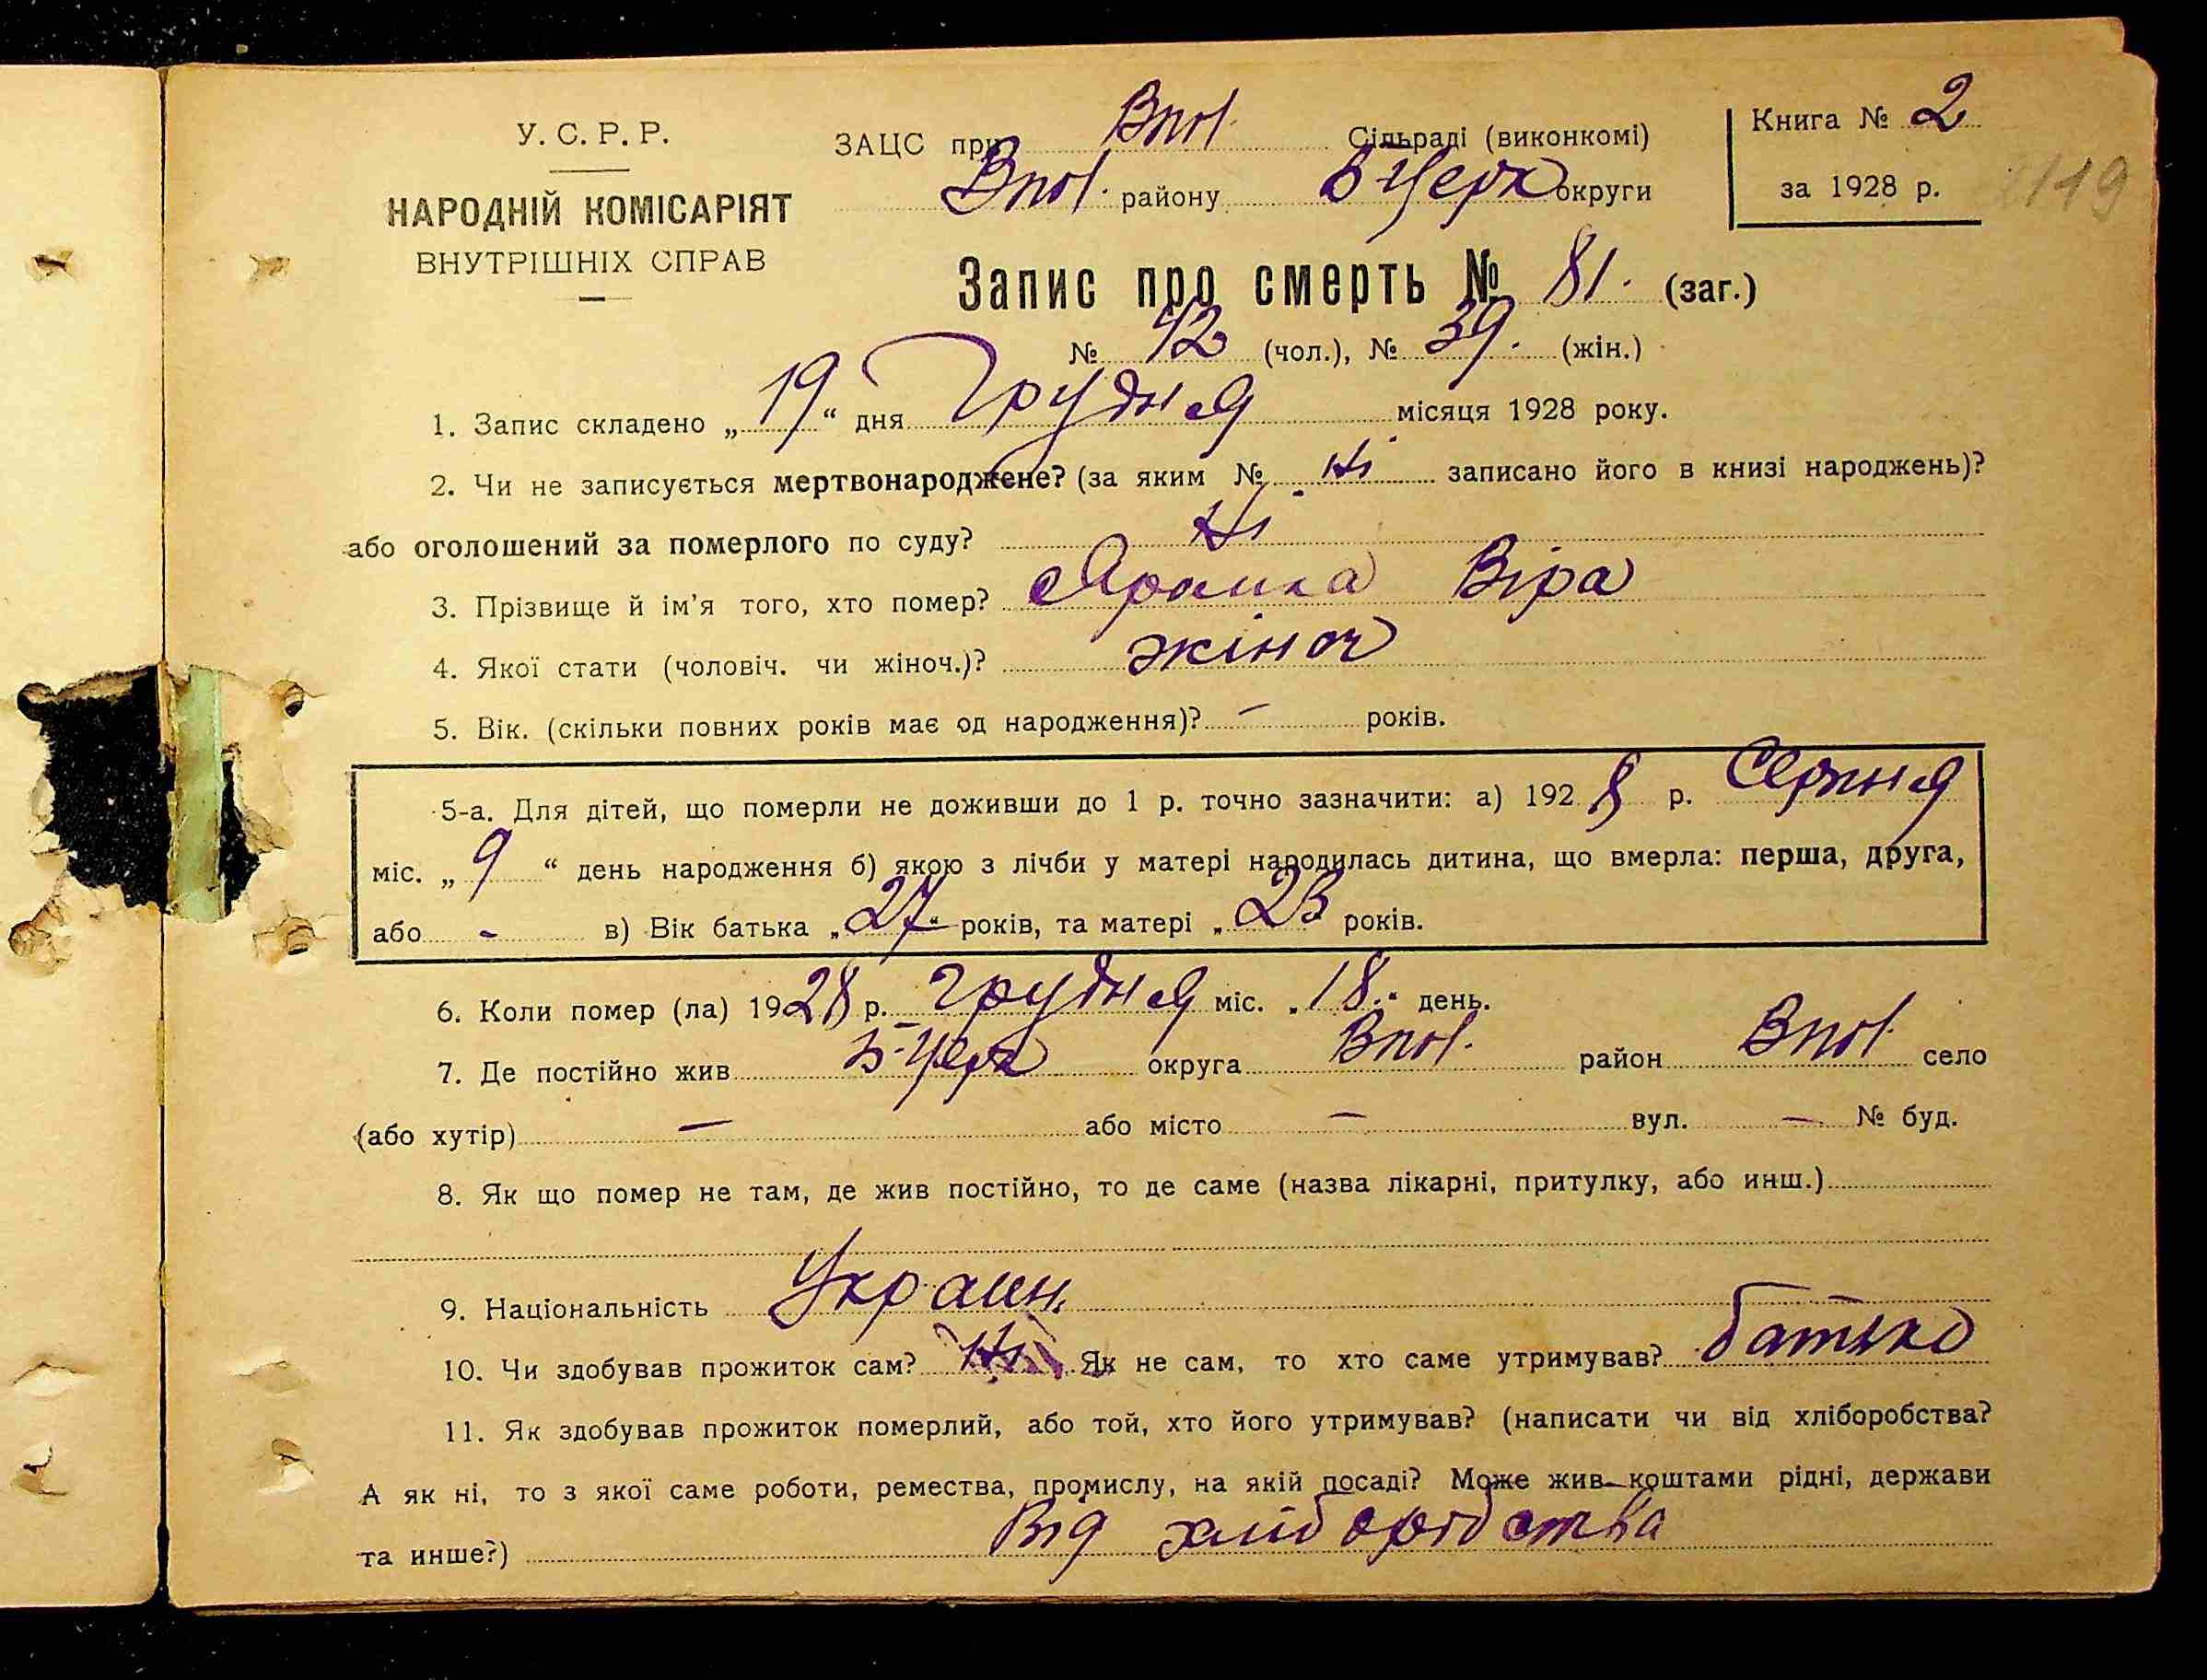 У. С. Р. Р.
НАРОДНІЙ КОМІСАРІЯТ
ВНУТРІШНІХ СПРАВ
ЗАЦС при Впол. Сільраді (виконкомі)
Впол. району БЦерк округи
Книга № 2
за 1928 р.
119
Запис про смерть № 81. (заг.)
№ 42 (чол.), № 39. (жін.)
1. Запис складено „19“ дня Грудня місяця 1928 року.
2. Чи не записується мертвонароджене? (за яким № Ні записано його в книзі народжень)?
або оголошений за померлого по суду? Ні
3. Прізвище й ім’я того, хто помер? Віра
4. Якої стати (чоловіч. чи жіноч.)? жіноч
5. Вік. (скільки повних років має од народження)? – років.
5-а. Для дітей, що померли не доживши до 1 р. точно зазначити: а) 1928 р. Серпня
міс. „9“ день народження б) якою з лічби у матері народилась дитина, що вмерла: перша, друга,
або - в) Вік батька „27“ років, та матері „23 років.
6. Коли помер (ла) 1928 р. грудня міс. „18.“ день.
7. Де постійно жив Б-Церк округа Впол. район Впол. село
(або хутір) — або місто — вул. — № буд.
8. Як що помер не там, де жив постійно, то де саме (назва лікарні, притулку, або инш.)
9. Національність Украин.
10. Чи здобував прожиток сам? Ні Як не сам, то хто саме утримував? батько
11. Як здобував прожиток померлий, або той, хто його утримував? (написати чи від хліборобства?
А як ні, то з якої саме роботи, ремества, промислу, на якій посаді? Може жив коштами рідні, держави
та инше?) Від хліборобства